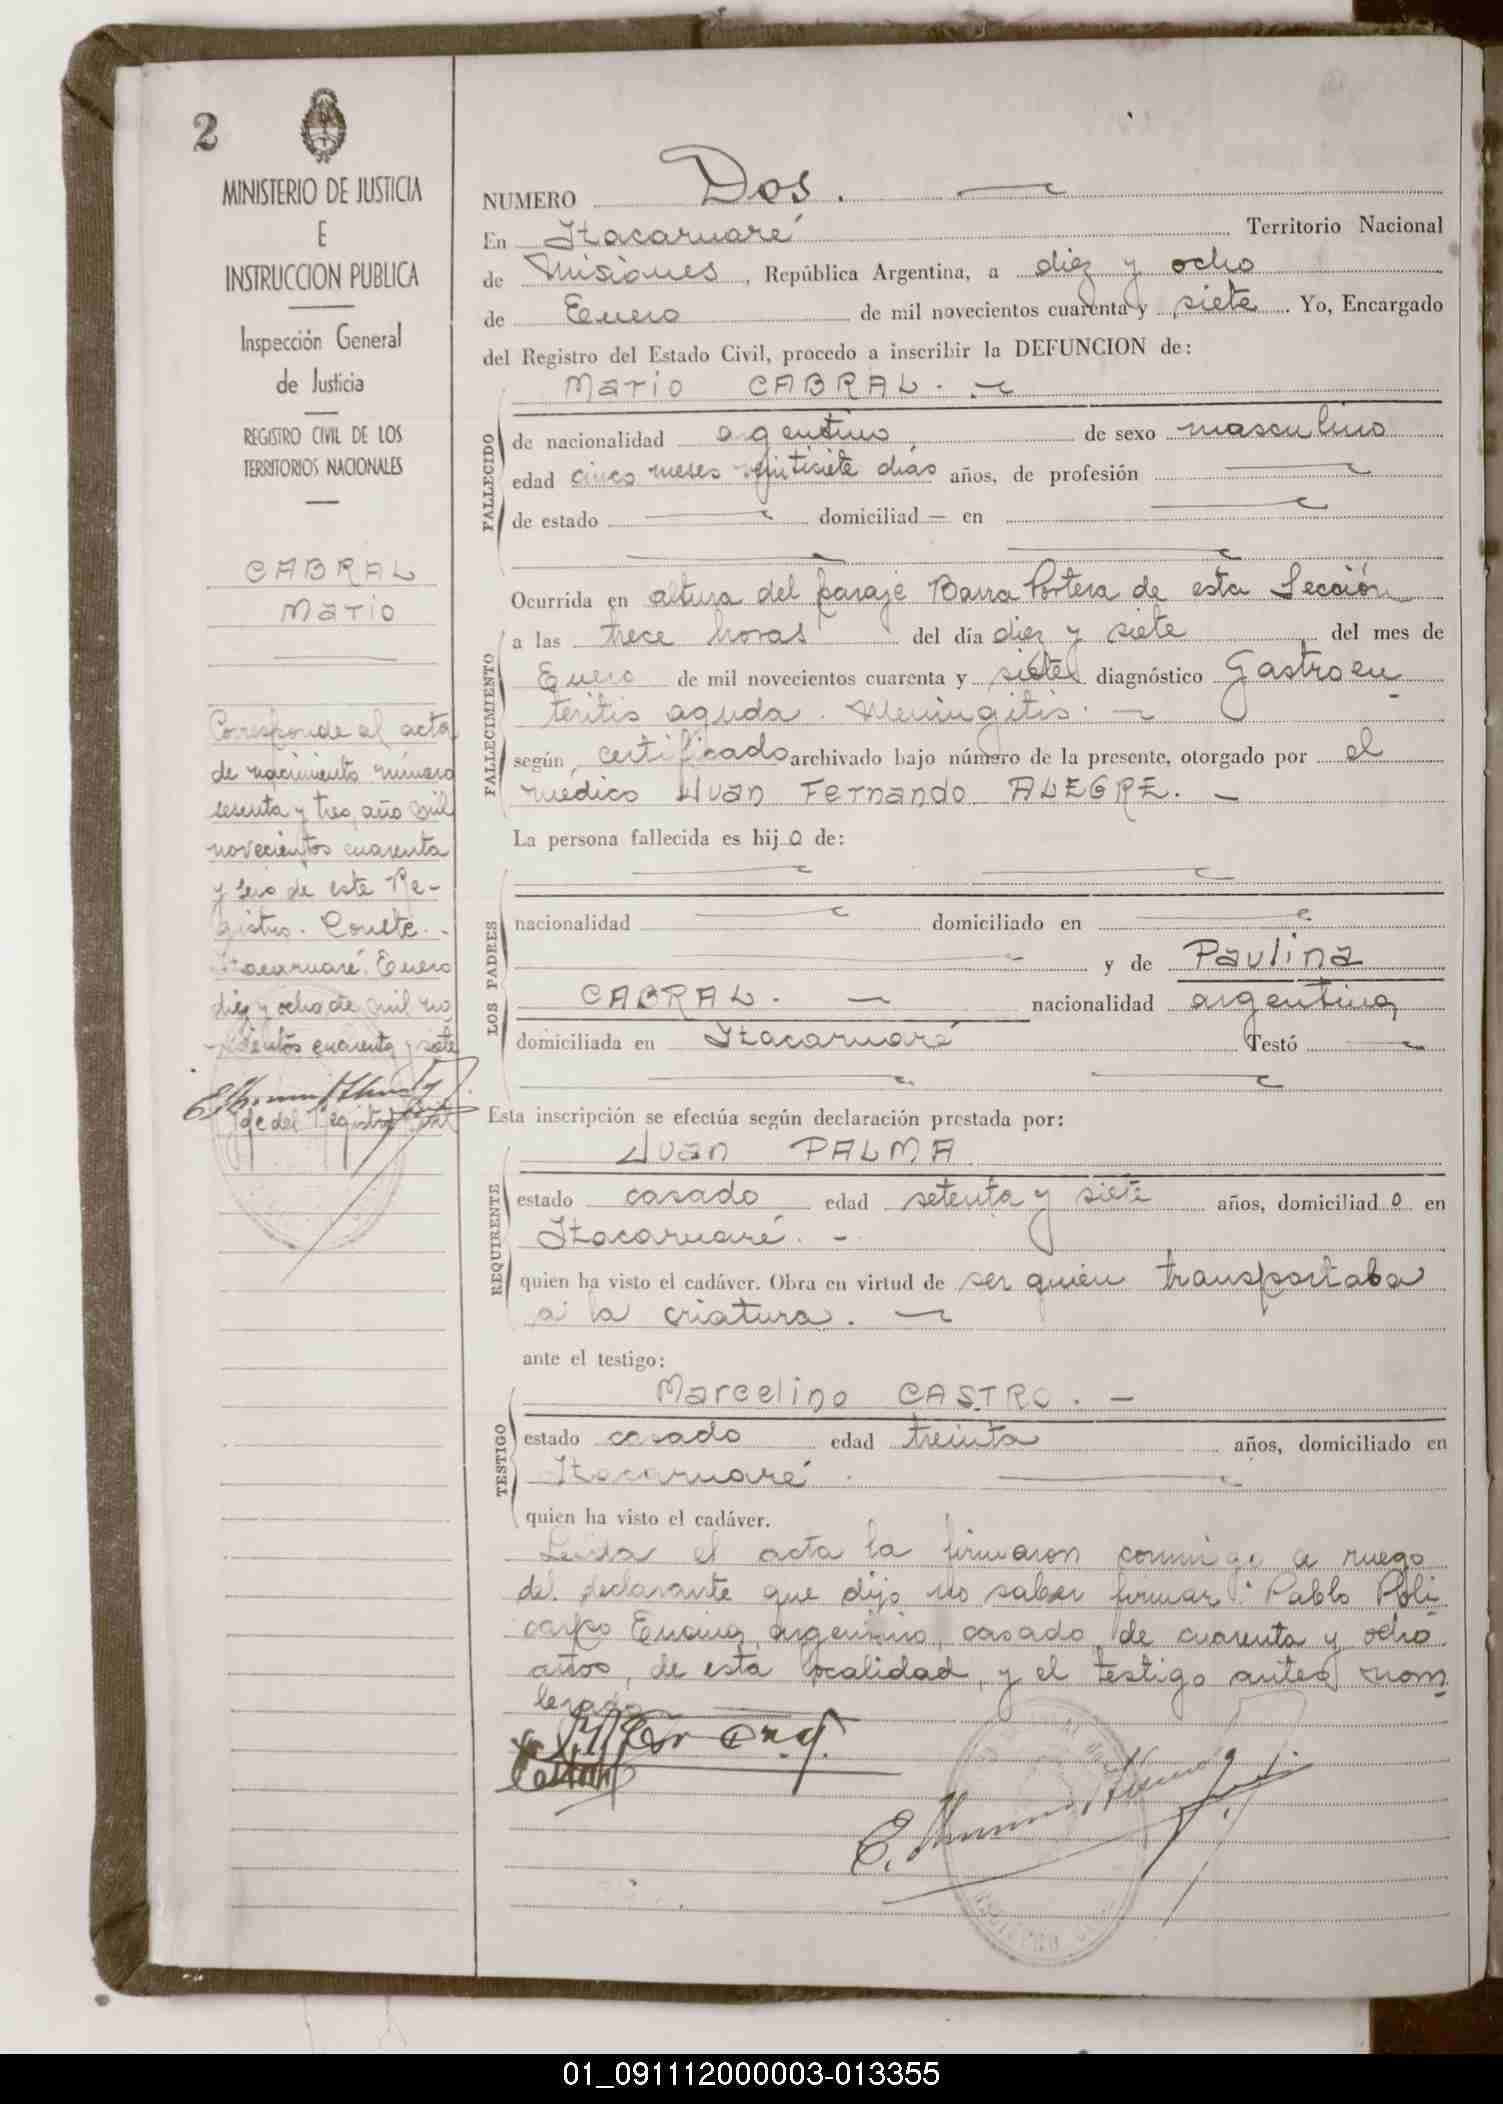 2
MINISTERIO DE JUSTICIA
E
INSTRUCCION PUBLICA
Inspección General
de Justicia
REGISTRO CIVIL DE LOS
TERRITORIOS NACIONALES
CABRAL
Mario
Corresponde al acta
de nacimiento número
sesenta y tres, año mil
novecientos cuarenta
y seis de este Re-
gistro. Conste.-
Itacaruaré, Enero
diez y ocho de mil no
vecientos cuarenta y siete
Jefe del Registro Civil
NUMERO Dos.
En Itacaruaré Territorio Nacional
de Misiones, República Argentina, a diez y ocho
de Enero de mil novecientos cuarenta y siete. Yo, Encargado
del Registro del Estado Civil, procedo a inscribir la DEFUNCION de:
Mario CABRAL.
FALLECIDO
de nacionalidad argentino de sexo masculino
edad cinco meses veintisiete días años, de profesión
de estado domiciliad en
Ocurrida en altura del paraje Barra Portera de esta Sección
FALLECIMIENTO
a las trece horas del día diez y siete del mes de
Enero de mil novecientos cuarenta y siete diagnóstico Gastroen
teritis aguda. Meningitis.
según certificado archivado bajo número de la presente, otorgado por el
médico Juan Fernando ALEGRE.
La persona fallecida es hijo de:
LOS PADRES
nacionalidad domiciliado en
y de Paulina
CABRAL. nacionalidad argentina
domiciliada en Itacaruaré Testó
Esta inscripción se efectúa según declaración prestada por:
Juan PALMA
REQUIRENTE
estado casado edad setenta y siete años, domiciliado en
Itacaruaré.
quien ha visto el cadáver. Obra en virtud de ser quien transportaba
a la criatura.
ante el testigo:
Marcelino CASTRO.
TESTIGO
estado casado edad treinta años, domiciliado en
Itacaruaré.
quien ha visto el cadáver.
Leída el acta la firmaron conmigo a ruego
del declarante que dijo no saber firmar: Pablo Poli
carpo Encina, argentino, casado, de cuarenta y ocho
años, de esta localidad, y el testigo antes nom
brado
01_091112000003-013355